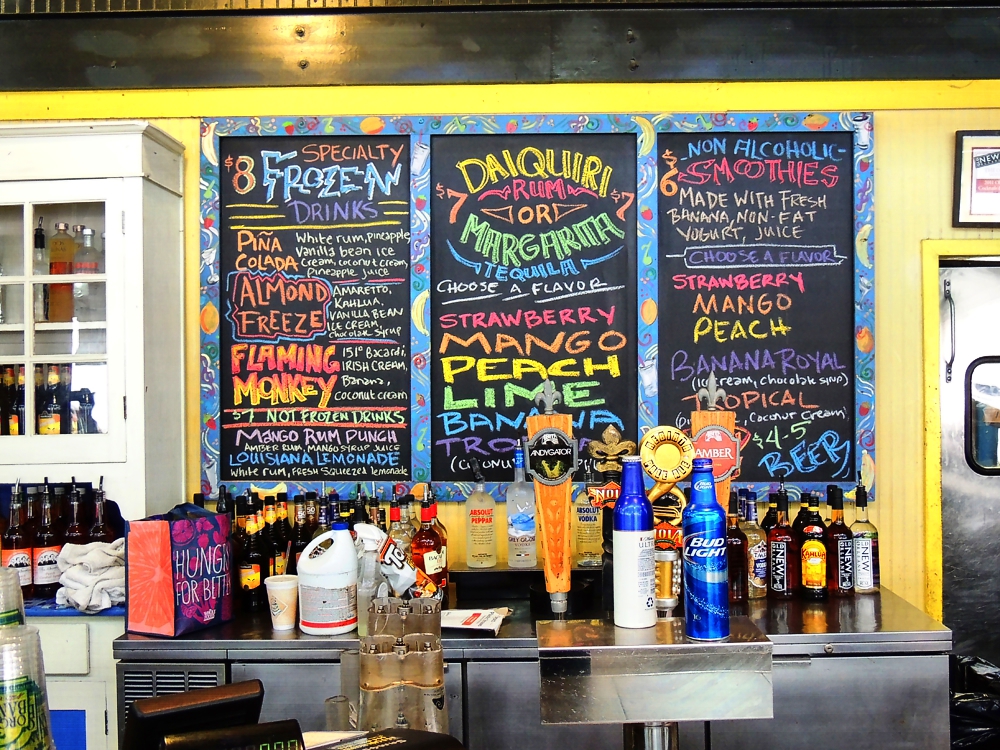 $8 SPECIALTY
FROZEN
DRINKS
PIÑA COLADA
White rum, pineapple,
Vanilla bean ice
Cream, coconut cream,
Pineapple juice
ALMOND FREEZE
AMARETTO,
KAHLUA,
VANILLA BEAN
ICE CREAM,
chocolate syrup
FLAMING MONKEY
151° Bacardi,
IRISH CREAM,
Banana,
coconut cream
$7 NOT FROZEN DRINKS
MANGO RUM PUNCH
AMBER RUM, MANGO SYRUP, JUICE
LOUISIANA LEMONADE
White rum, FRESH SQUEEZED lemonade
DAIQUIRI
$7 RUM $7
OR
MARGARITA
TEQUILA
CHOOSE A FLAVOR
STRAWBERRY
MANGO
PEACH
LIME
BANANA
NON ALCOHOLIC-
$6 SMOOTHIES
MADE WITH FRESH
BANANA, NON-FAT
YOGURT, JUICE
CHOOSE A FLAVOR
STRAWBERRY
MANGO
PEACH
BANANA ROYAL
(ice cream, chocolate syrup)
TROPICAL
Coconut Cream)
$4-5
BEER
ANDYGATOR
AMBER
NOLA
ABSOLUT
PEPPAR
GREY GOOSE
ABSOLUT
VODKA
HUNGRY
FOR BETTER
BUD LIGHT
KAHLUA
NEW
NEW
NEW